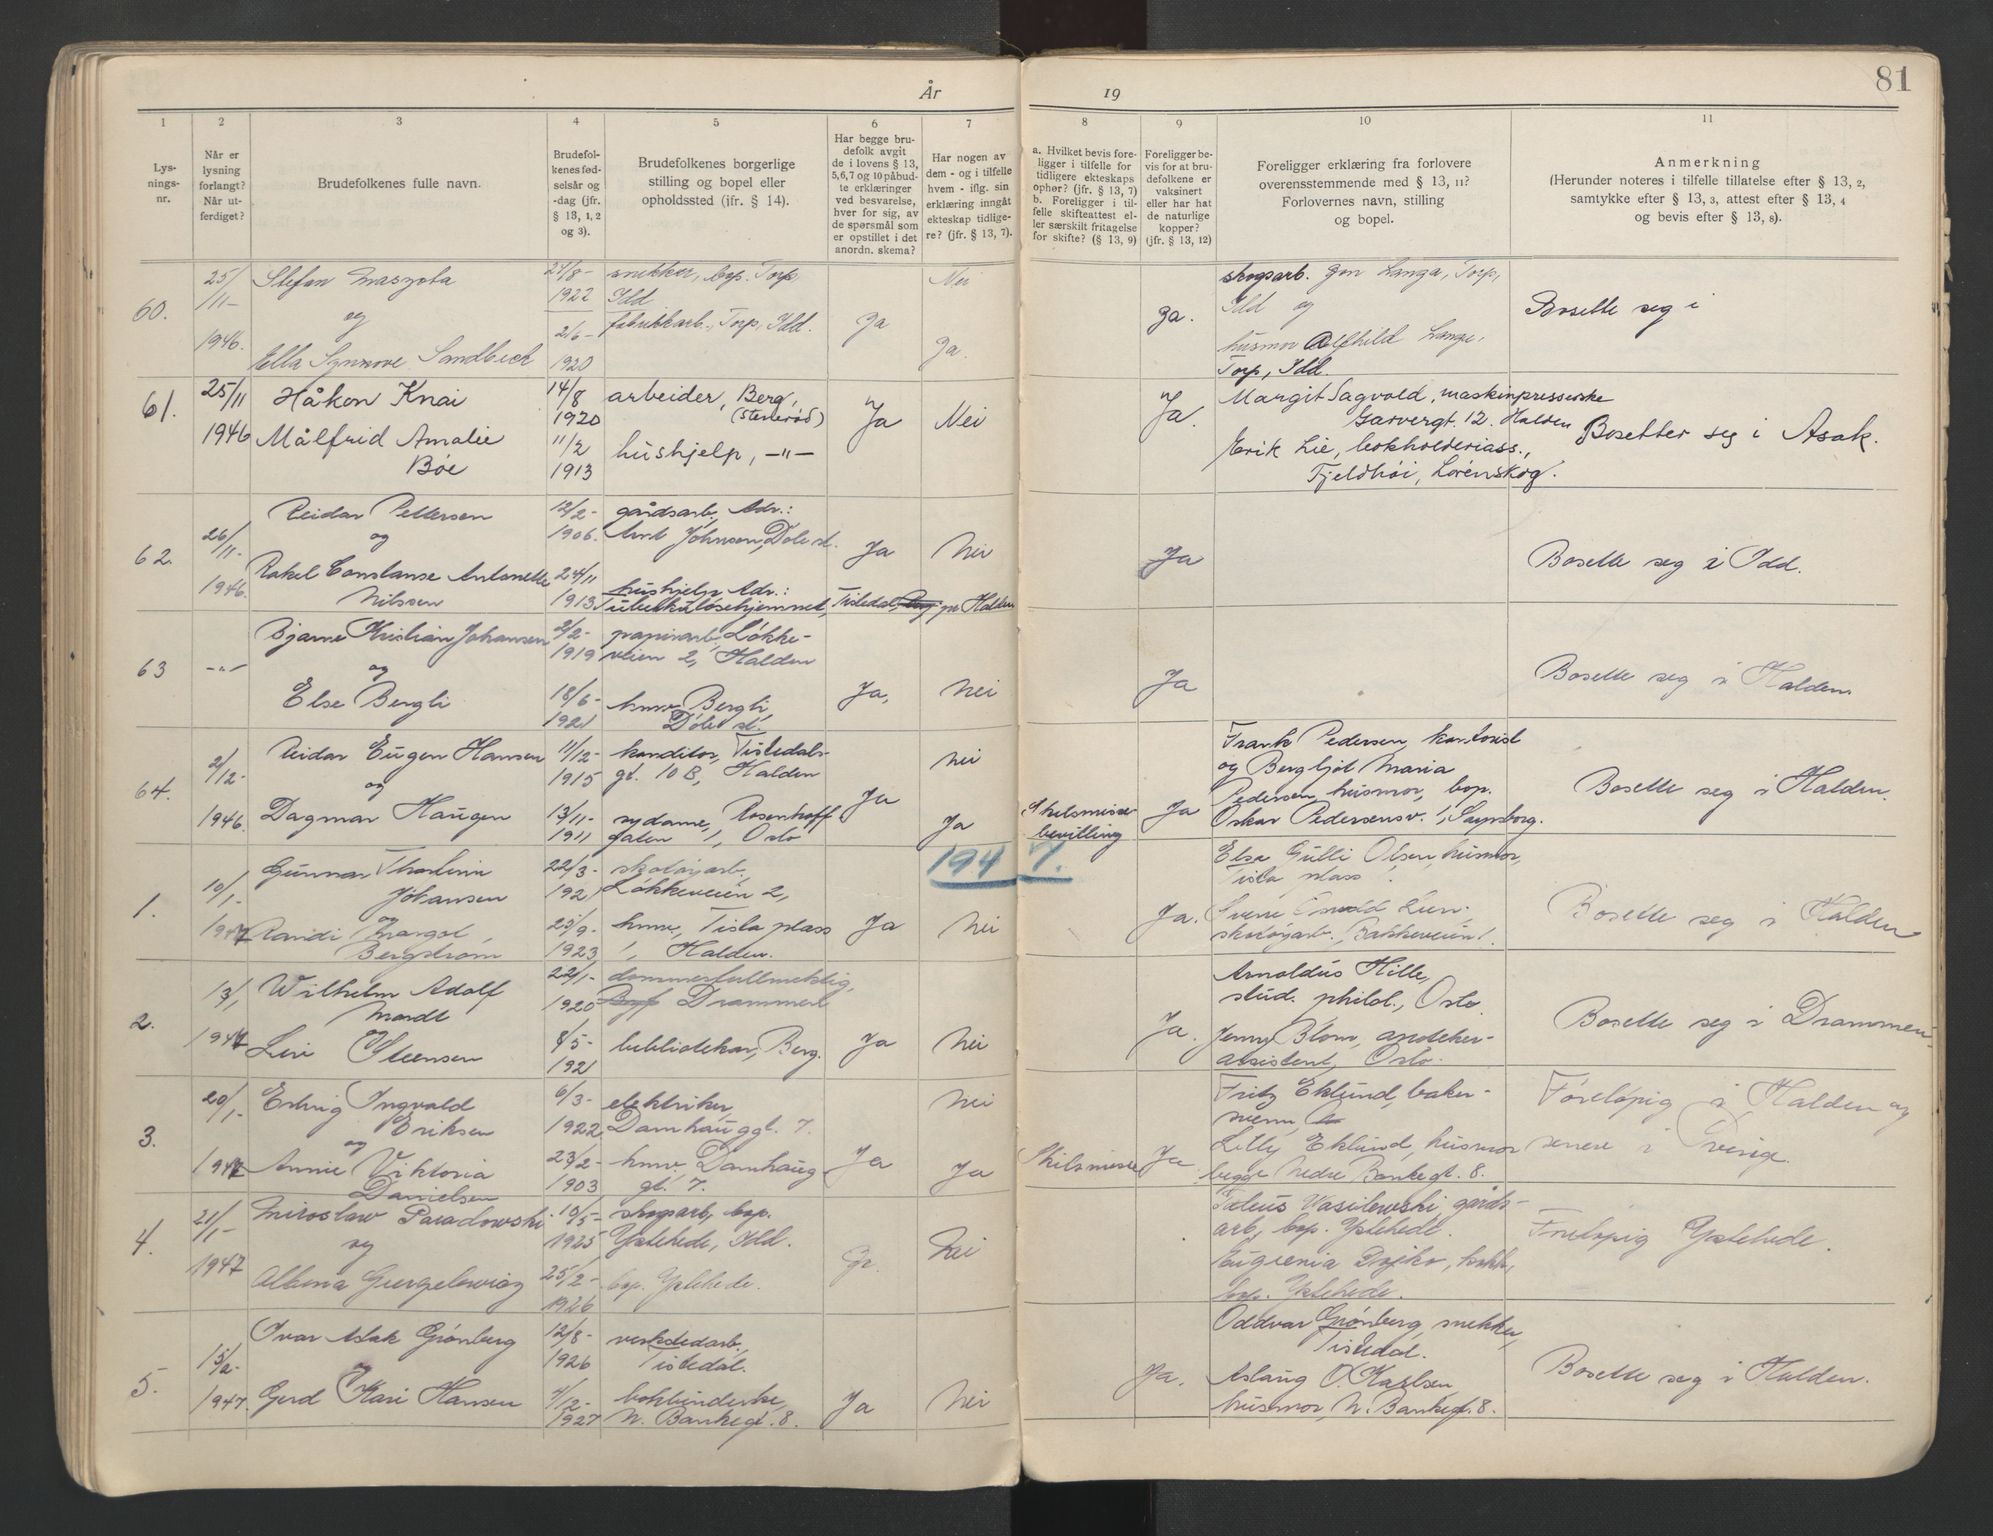 År 19 81
1 2 3 4 5 6 7 8 9 10 11
Lys-
nings-
nr.
Når er
lysning
forlangt?
Når ut-
ferdiget?
Brudefolkenes fulle navn.
Brudefol-
kenes fød-
selsår og
-dag (jfr.
§ 13, 1, 2
og 3).
Brudefolkenes borgerlige
stilling og bopel eller
opholdssted (jfr. § 14).
Har begge bru-
defolk avgit
de i lovens § 13,
5, 6, 7 og 10 påbud-
te erklæringer
ved besvarelse,
hver for sig, av
de spørsmål som
er opstillet i det
anordn. skema?
Har nogen av
dem - og i tilfelle
hvem - iflg. sin
erklæring inngåt
ekteskap tidlige-
re? (jfr. § 13, 7).
a. Hvilket bevis fore-
ligger i tilfelle for
tidligere ekteskaps
ophør? (jfr. § 13, 7)
b. Foreligger i til-
felle skifteattest el-
ler særskilt fritagelse
for skifte? (§ 13, 9)
Foreligger be-
vis for at bru-
defolkene er
vaksinert
eller har hat
de naturlige
kopper?
(jfr. § 13, 12)
Foreligger erklæring fra forlovere
overensstemmende med § 13, 11?
Forlovernes navn, stilling
og bopel.
Anmerkning
(Herunder noteres i tilfelle tillatelse efter § 13, 2,
samtykke efter § 13, 3, attest efter § 13, 4
og bevis efter § 13, 8).
60.
25/11-
1946.
Stefan Maszota
og
Ella Synnove Sandbeck
27/8-
1922
2/6-
1920
snekker, bop. Torp,
Idd
fabrikkarb., Torp, Idd.
Ja
Nei
Ja.
Ja.
skogsarb. Jon Langa, Torp,
Idd og
husmor Alfhild Lange,
Torp, Idd.
Bosette seg i
61.
25/11
1946
Håkon Knai
Målfrid Amalie
Bøe
14/8
1920
11/2
1913
arbeider, Berg,
(Stenerød)
hushjelp, -"-
Ja
Nei
Ja.
Margit Sagvold, maskinpresserske
Garvergt. 12. Halden
Erik Lie, bokholderiass.,
Fjeldhøi, Lørenskog.
Bosetter seg i Asak.
62.
26/11-
1946.
Reidar Pettersen
og
Rakel Constanse Antonette
Nilssen
12/2-
1906.
24/11
1913
gårdsarb, Adr.:
Johnsen, Dole st.
hushjelp Adr.:
Tuberkulosehjemmet, Tistedal, Berg pr Halden
Ja
Nei
Ja
Bosette seg i Idd.
63
-"-
Bjarne Kristian Johansen
og
Else Bergli
2/2-
1919
18/6-
1921
papirarb, Løkke-
veien 2, Halden
hmv. Bergli,
Dole st.
Ja,
Nei
Ja
Bosette seg i Halden
64.
2/12-
1946.
Reidar Eugen Hansen
og
Dagmar Haugen
11/12-
1915
13/11-
1911
konditor, Tistedals-
gt. 10 B, Halden
sydame, Rosenhoff
gaten 1, Oslo
Ja
Nei
Ja
Skilsmisse
bevilling
Ja
Frank Pedersen, kontorist
og Bergljot Maria
Pedersen, husmor, bop.
Oskar Pedersensv. 1, Sarpsborg.
Bosette seg i Halden.
1947.
1.
10/1-
1947
Gunnar
Johansen
og
Randi Margot
Bergstrøm
22/3-
1921
25/9-
1923
skotøyarb,
Løkkeveien 2,
hmv, Tista plass
1, Halden.
Ja
Nei
Ja.
Else Gulli Olsen, husmor,
Tista plass 1.
Lien,
skotøyarb. Bakkeveien 1.
Bosette seg i Halden
2.
13/1
1947
Wilhelm Adolf
Mordt
Steensen
22/1-
1920
8/5-
1921
dommerfullmektig,
Drammen
bibliotekar, Berg.
Ja
Nei
Ja.
Arnoldus Hille,
stud. philol., Oslo.
Jenny Blom, apoteker-
assistent, Oslo.
Bosette seg i Drammen.
3.
20/1-
1947
Erling Ingvald
Eriksen
og
Annie Viktoria
Danielsen
6/3-
1922
23/2-
1903
elektriker,
Damhauggt. 7.
hmv. Damhaug
gt. 7.
Ja
Nei
Ja
Skilsmisse
Ja
Fritz Eklund, baker-
svenn,
Lilly Eklund, husmor
begge Nedre Bankegt. 8.
Foreløpig i Halden og
senere i Sverige.
4.
21/1-
1947
Miroslaw Paradowski
og
Albina
10/5-
1925
25/2-
1926
skogsarb, bop.
Ystehede, Idd.
bop. Ystehede.
Ja.
Nei
Wasilewski, gårds-
arb, bop. Ystehede.
Eugienia
bop. Ystehede.
Foreløpig Ystehede.
5.
15/2-
1947.
Ivar Asak Grønberg
og
Gerd Kari Hansen
12/8-
1926
4/2-
1927
verkstedarb,
Tistedal.
bokbinderske,
N. Bankegt. 8.
Ja
Nei
Ja.
Oddvar Grønberg, snekker,
Tistedal.
Aslaug O. Karlsen,
husmor, N. Bankegt. 8.
Bosette seg i Halden.